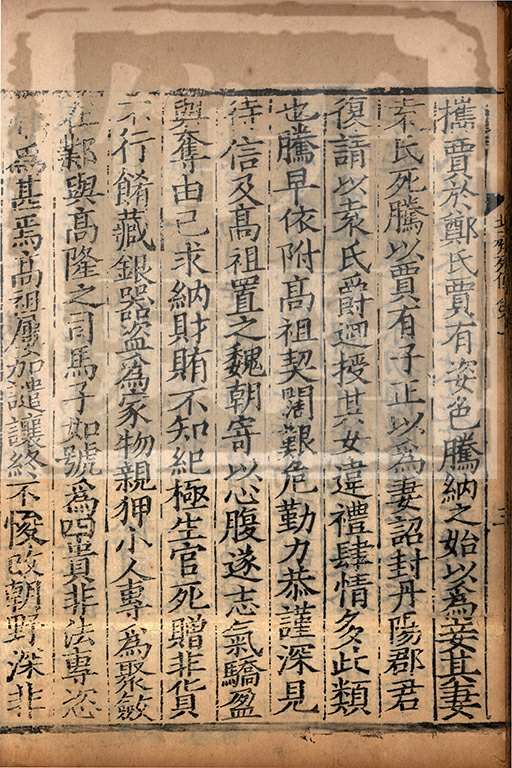 攜賈於鄭氏賈有姿色騰納之始以為妾其妻
袁氏死騰以賈有子正以為妻詔封丹陽郡君
復請以袁氏爵迴授其女違禮肆情多此類
也騰早依附高祖契闊艱危勤力恭謹深見
待信及高祖置之魏朝寄以心腹遂志氣驕盈
與奪由己求納財賄不知紀極生官死贈非貨
不行餚藏銀器盜為家物親狎小人專為聚斂
在鄴與高隆之司馬子如號為四貴非法專恣
為甚焉高祖屢加譴讓終不悛改朝野深非